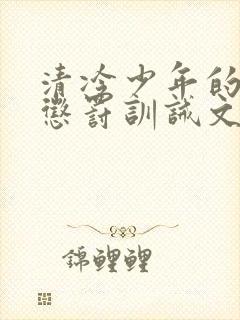 清冷少年的
懲罰訓誡文
錦鯉鯉